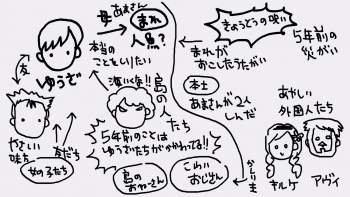 母あまさん
まれ
人魚?
きょうどうの呪い
5年前の
災がい
まれが
おこしたうたがい
友
ゆうざ
本当の
ことをいりたい
海に魚!!
島の人
たち
本土
あまさんが2人
しんだ
あやしい
外国人たち
やさしい
味方
女の子たち
友だち
5年前のことは
ゆうざたちがかかわってる!!
島の
おねーさん
こわい
おじさん
キルケ
アヴィ